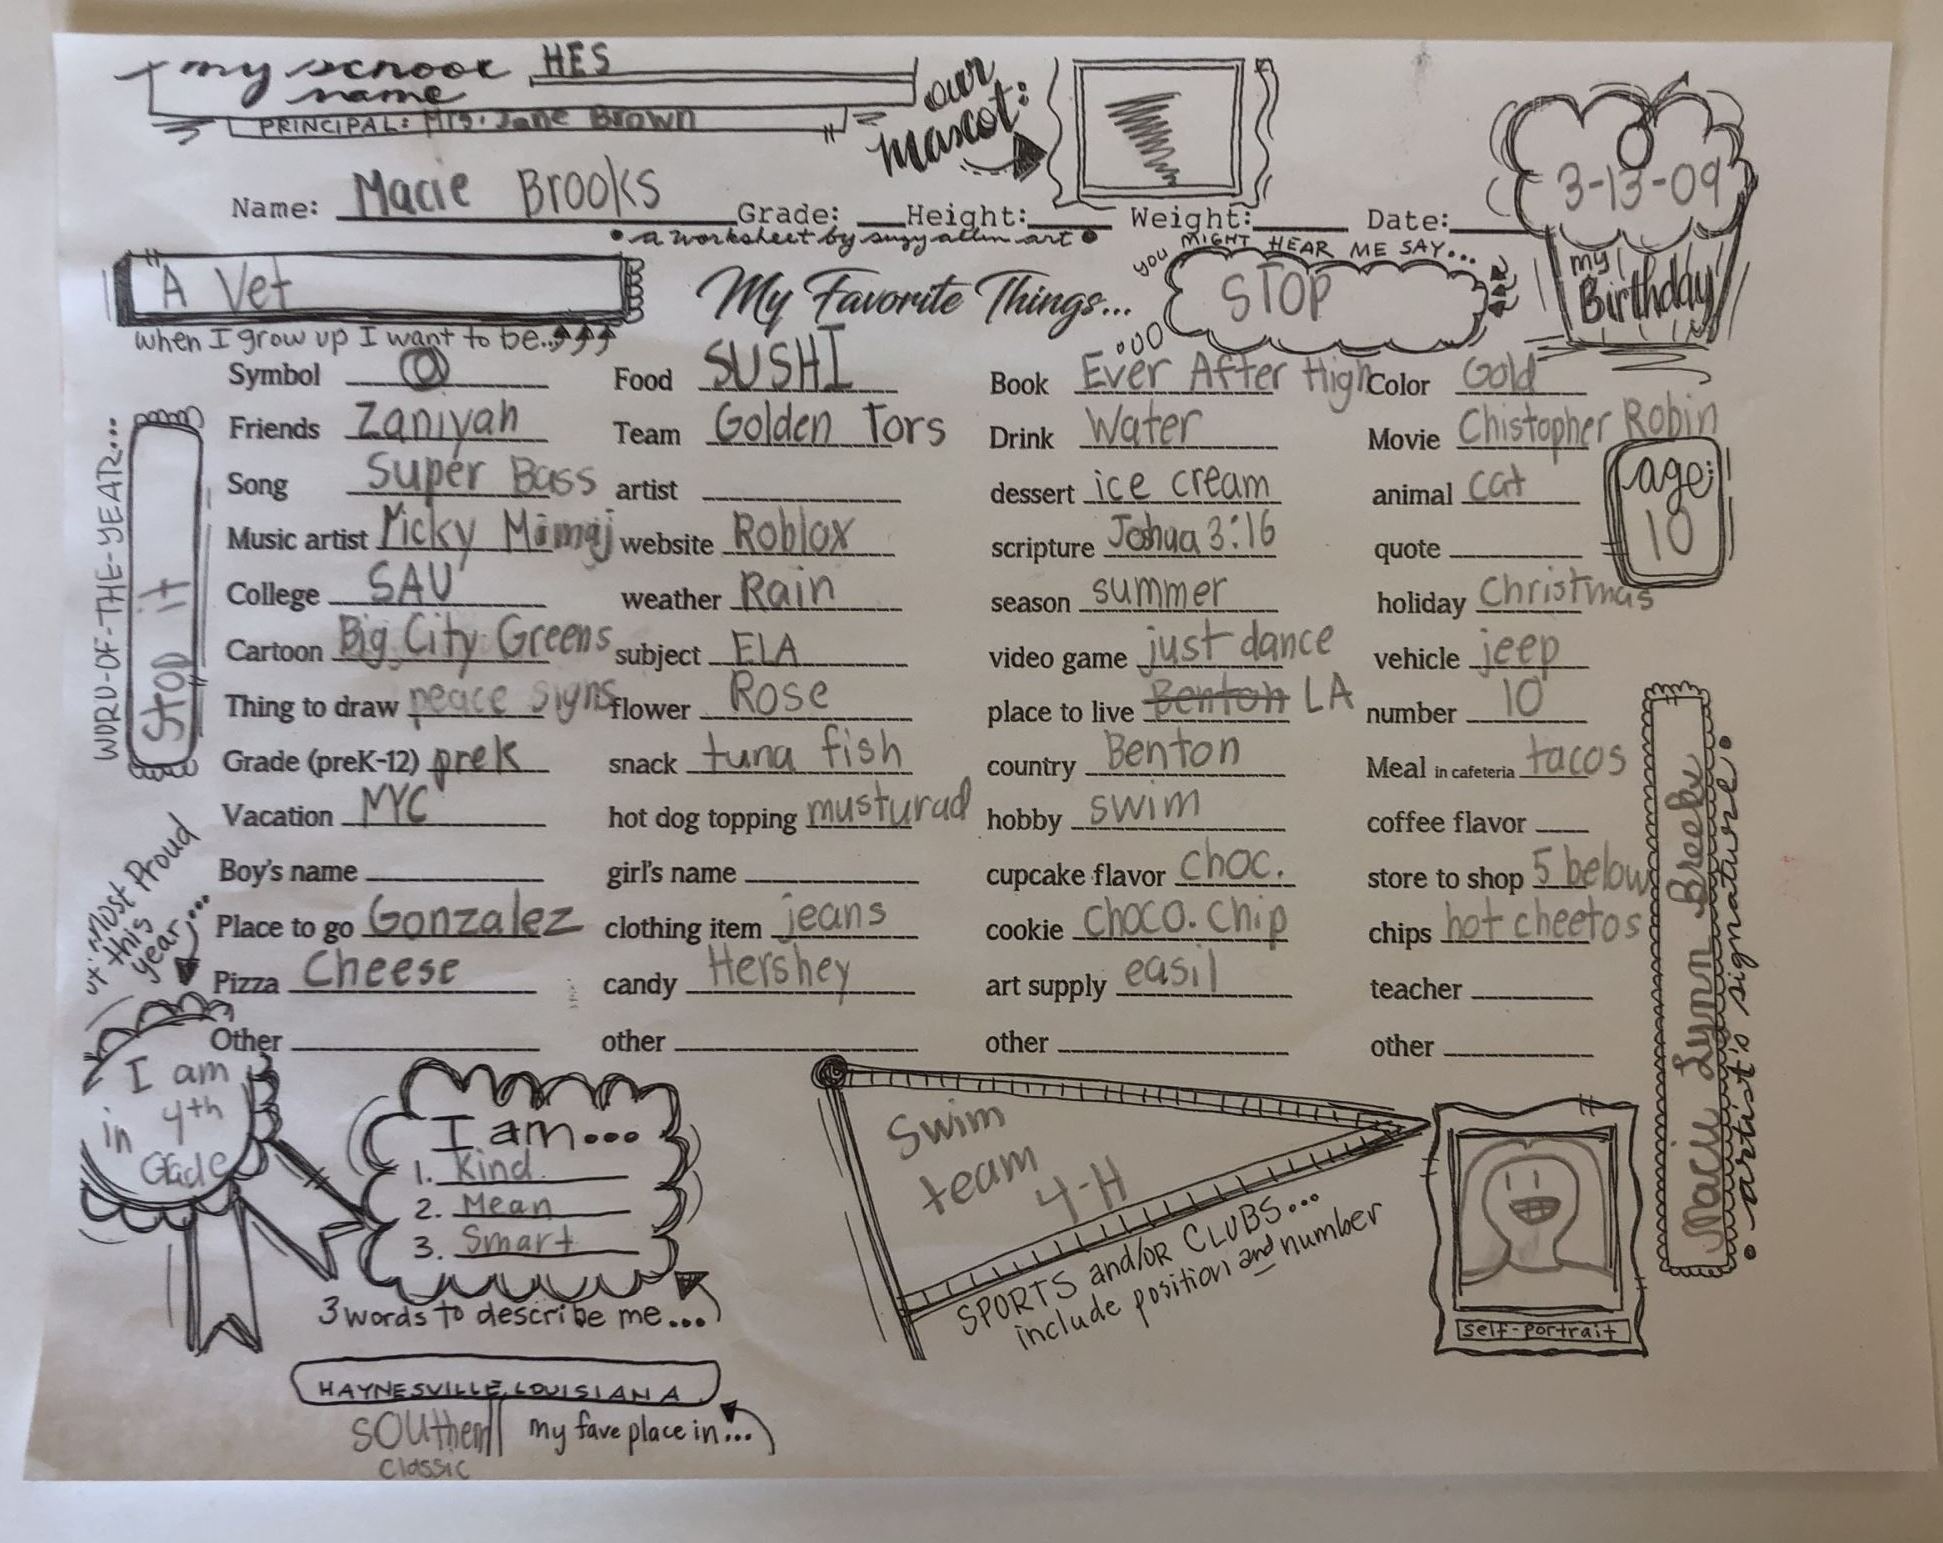 my school HES
name
PRINCIPAL: Mrs. Jane Brown
our
mascot:
3-13-09
my
Birthday
Name: Macie Brooks Grade: Height: Weight: Date:
• a worksheet by suzy allen art •
A Vet
when I grow up I want to be...
My Favorite Things...
you MIGHT HEAR ME SAY...
STOP
Symbol Food SUSHI Book Ever After High Color Gold
Friends Zaniyah Team Golden Tors Drink Water Movie Chistopher Robin
Song Super Bass artist dessert ice cream animal cat
Music artist Nicky Minaj website Roblox scripture Joshua 3:16 quote
College SAU weather Rain season summer holiday Christmas
Cartoon Big City Greens subject ELA video game just dance vehicle jeep
Thing to draw peace signs flower Rose place to live Benton LA number 10
Grade (preK-12) preK snack tuna fish country Benton Meal in cafeteria tacos
Vacation NYC hot dog topping musturad hobby swim coffee flavor
Boy's name girl's name cupcake flavor choc. store to shop 5 below
Place to go Gonzalez clothing item jeans cookie choco. chip chips hot cheetos
Pizza Cheese candy Hershey art supply easil teacher
Other other other other
age:
10
WORD-OF-THE-YEAR...
Stop it
Most Proud
this
year...
I am
in 4th
Grade
I am...
1. Kind
2. Mean
3. Smart
3 words to describe me...
Swim
team
4-H
SPORTS and/OR CLUBS...
include position and number
self-portrait
Macie Lynn
• artist's signature •
HAYNESVILLE, LOUISIANA
Southern my fave place in...
Classic